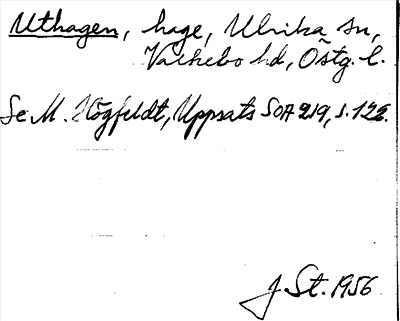 Uthagen, hage, Ulrika sn,
Valkebo hd, Östg. l.
Se M. Högfeldt, Uppsats SOA 219, s. 122.
J. St. 1956